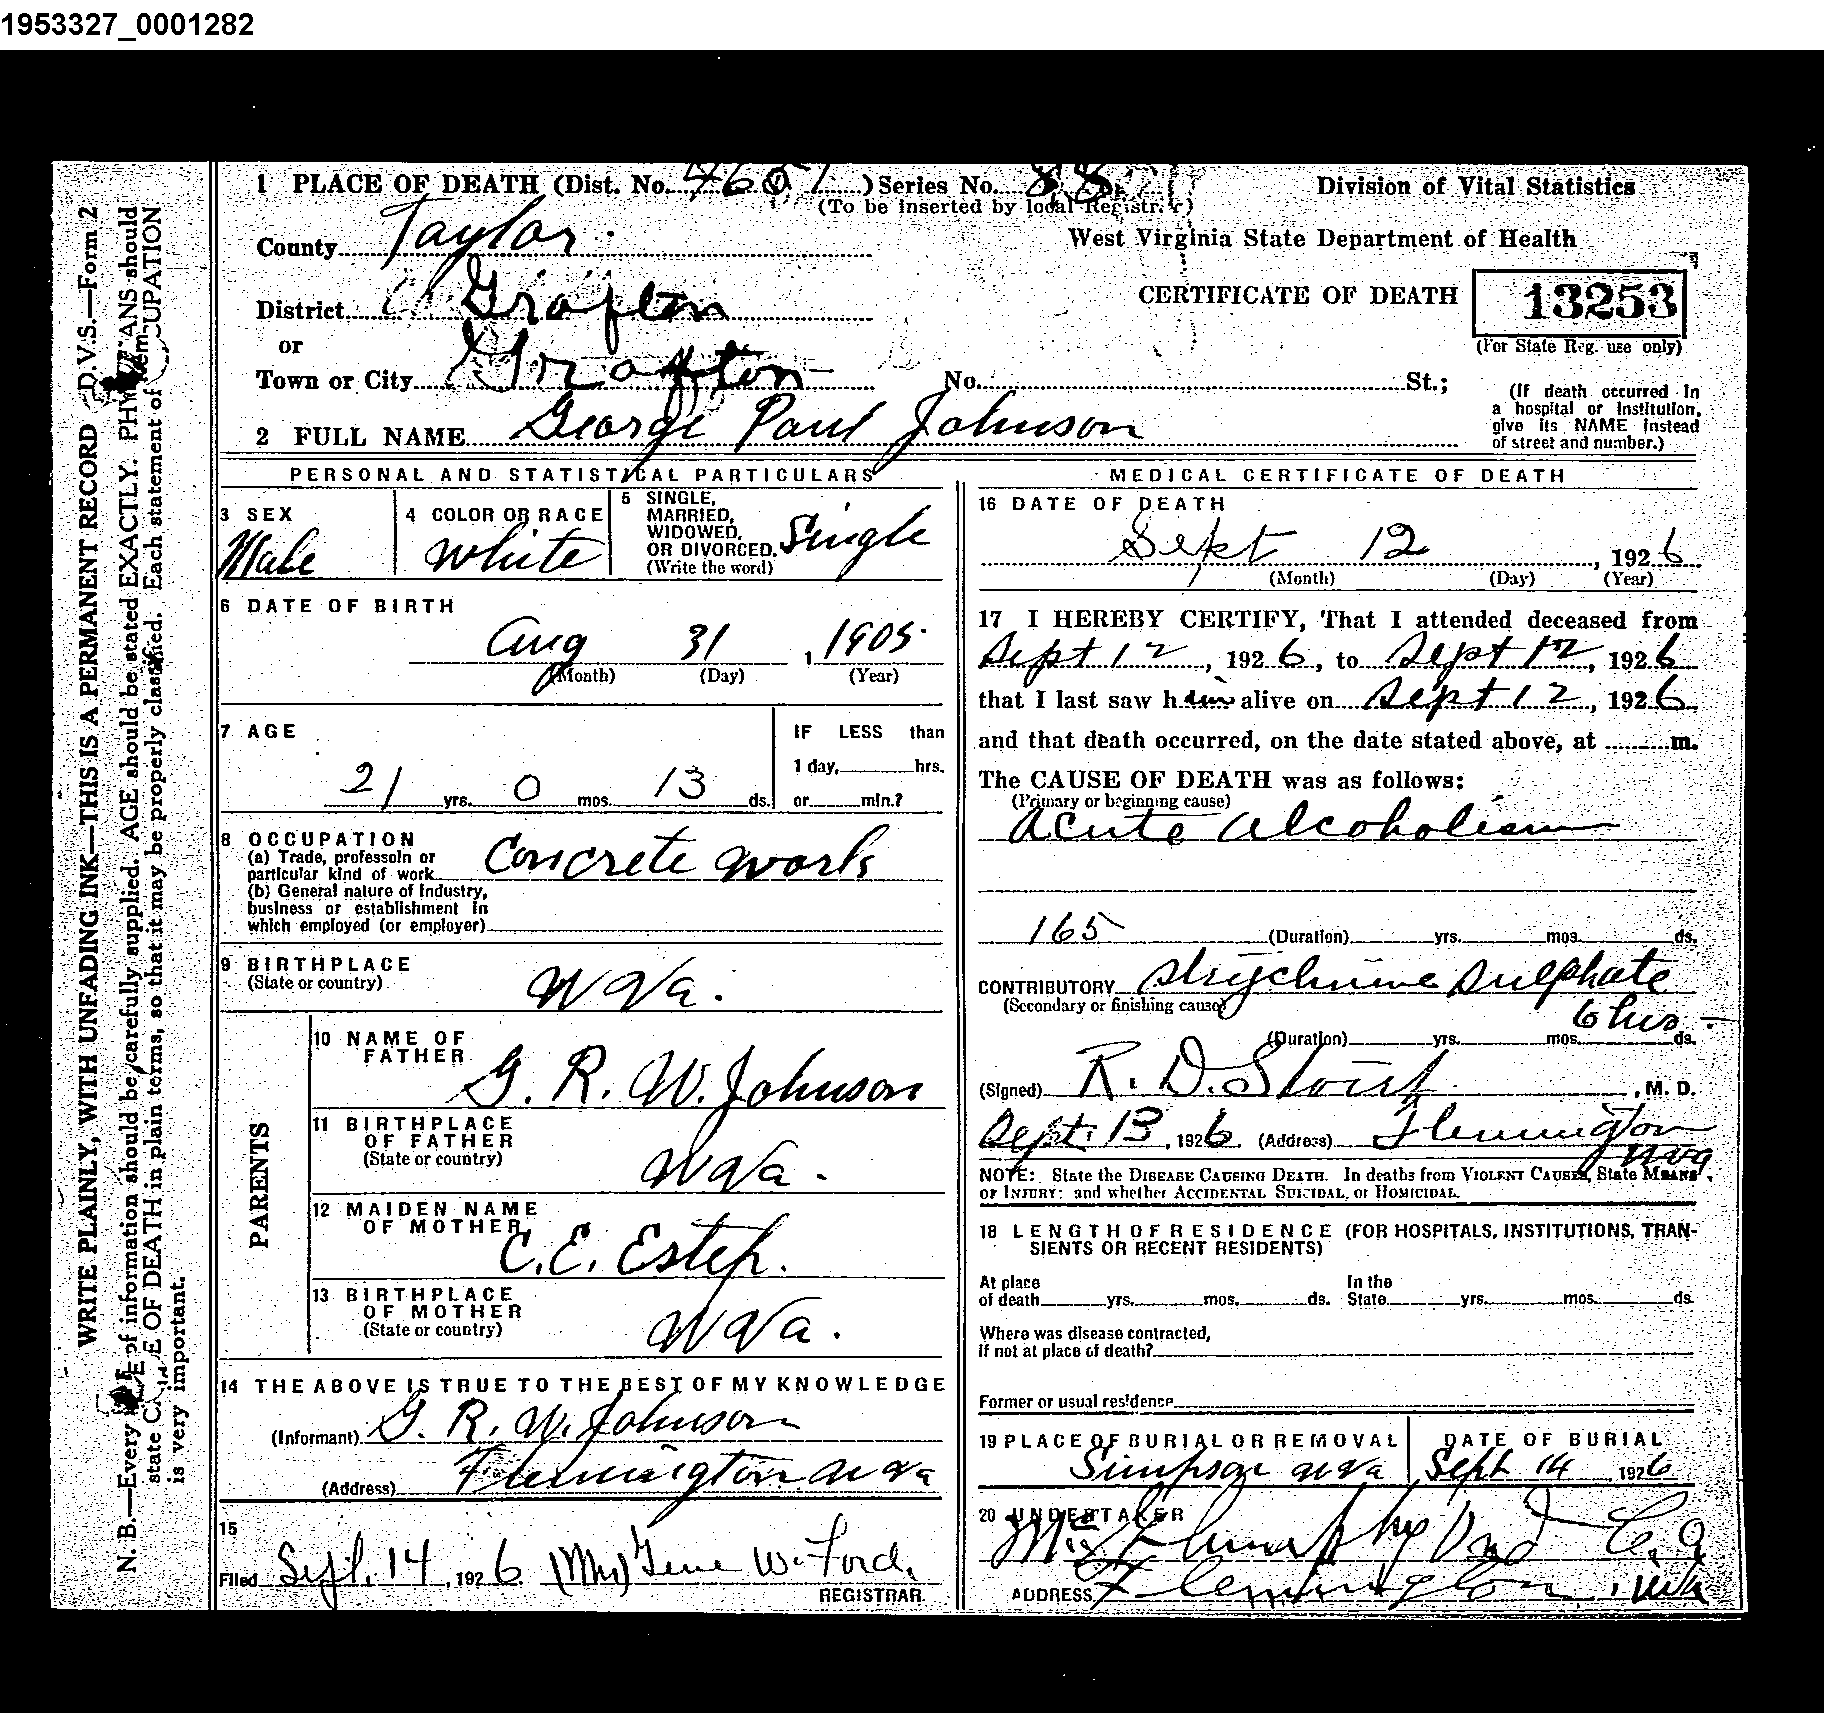 1953327_0001282
1 PLACE OF DEATH (Dist. No. 4601 ) Series No. 88
(To be inserted by local Registrar)
Division of Vital Statistics
County Taylor
West Virginia State Department of Health
District Grafton
CERTIFICATE OF DEATH 13253
(For State Reg. use only)
or
Town or City Grafton No. St.;
(If death occurred in a hospital or institution, give its NAME instead of street and number.)
2 FULL NAME George Paul Johnson
PERSONAL AND STATISTICAL PARTICULARS
3 SEX
Male
4 COLOR OR RACE
White
5 SINGLE, MARRIED, WIDOWED, OR DIVORCED. (Write the word)
Single
6 DATE OF BIRTH
Aug 31, 1905
(Month) (Day) (Year)
7 AGE
21 yrs. 0 mos. 13 ds.
IF LESS than
1 day, hrs.
or min.?
8 OCCUPATION
(a) Trade, professoin or
particular kind of work Concrete work
(b) General nature of industry,
business or establishment in
which employed (or employer)
9 BIRTHPLACE
(State or country)
W Va.
PARENTS
10 NAME OF FATHER
G. R. W. Johnson
11 BIRTHPLACE OF FATHER
(State or country)
W Va.
12 MAIDEN NAME OF MOTHER
C. E. Estep.
13 BIRTHPLACE OF MOTHER
(State or country)
W Va.
14 THE ABOVE IS TRUE TO THE BEST OF MY KNOWLEDGE
(Informant) G. R. W. Johnson
(Address) Flemington W Va
15
Filed Sept. 14, 1926 (Mrs) Gene W. Ford.
REGISTRAR
MEDICAL CERTIFICATE OF DEATH
16 DATE OF DEATH
Sept 12, 1926
(Month) (Day) (Year)
17 I HEREBY CERTIFY, That I attended deceased from
Sept 12, 1926, to Sept 12, 1926
that I last saw him alive on Sept 12, 1926
and that death occurred, on the date stated above, at m.
The CAUSE OF DEATH was as follows:
(Primary or beginning cause)
Acute Alcoholism
165 (Duration) yrs. mos. ds.
CONTRIBUTORY Strychnine Sulphate
(Secondary or finishing cause)
6 hrs.
(Duration) yrs. mos. ds.
(Signed) R. D. , M. D.
Sept. 13, 1926. (Address) Flemington
W Va
NOTE: State the DISEASE CAUSING DEATH. In deaths from VIOLENT CAUSES, State MEANS
OF INJURY: and whether ACCIDENTAL SUICIDAL, or HOMICIDAL.
18 LENGTH OF RESIDENCE (FOR HOSPITALS, INSTITUTIONS, TRAN-
SIENTS OR RECENT RESIDENTS)
At place of death yrs. mos. ds. In the State yrs. mos. ds.
Where was disease contracted,
if not at place of death?
Former or usual residence
19 PLACE OF BURIAL OR REMOVAL
Simpson W Va
DATE OF BURIAL
Sept 14 1926
20 UNDERTAKER
ADDRESS Flemington, W Va
WRITE PLAINLY, WITH UNFADING INK—THIS IS A PERMANENT RECORD D.V.S.—Form 2
N. B.—Every of information should be carefully supplied. AGE should be stated EXACTLY. should
state OF DEATH in plain terms, so that it may be properly classified. Each statement of
is very important.